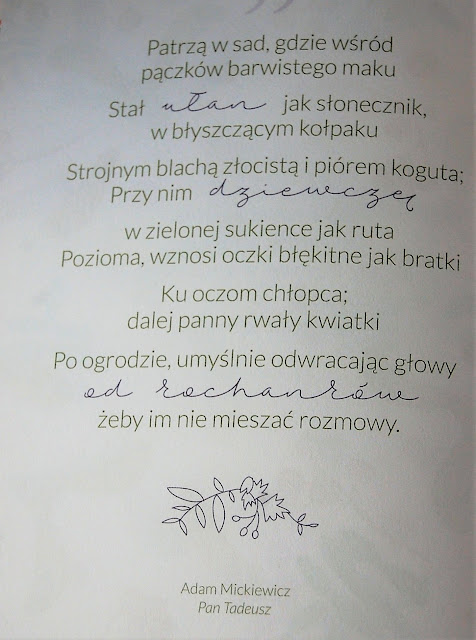 Patrzą w sad, gdzie wśród
pączków barwistego maku
Stał ułan jak słonecznik,
w błyszczącym kołpaku
Strojnym blachą złocistą i piórem koguta;
Przy nim dziewczę
w zielonej sukience jak ruta
Pozioma, wznosi oczki błękitne jak bratki
Ku oczom chłopca;
dalej panny rwały kwiatki
Po ogrodzie, umyślnie odwracając głowy
od kochanków
żeby im nie mieszać rozmowy.
Adam Mickiewicz
Pan Tadeusz